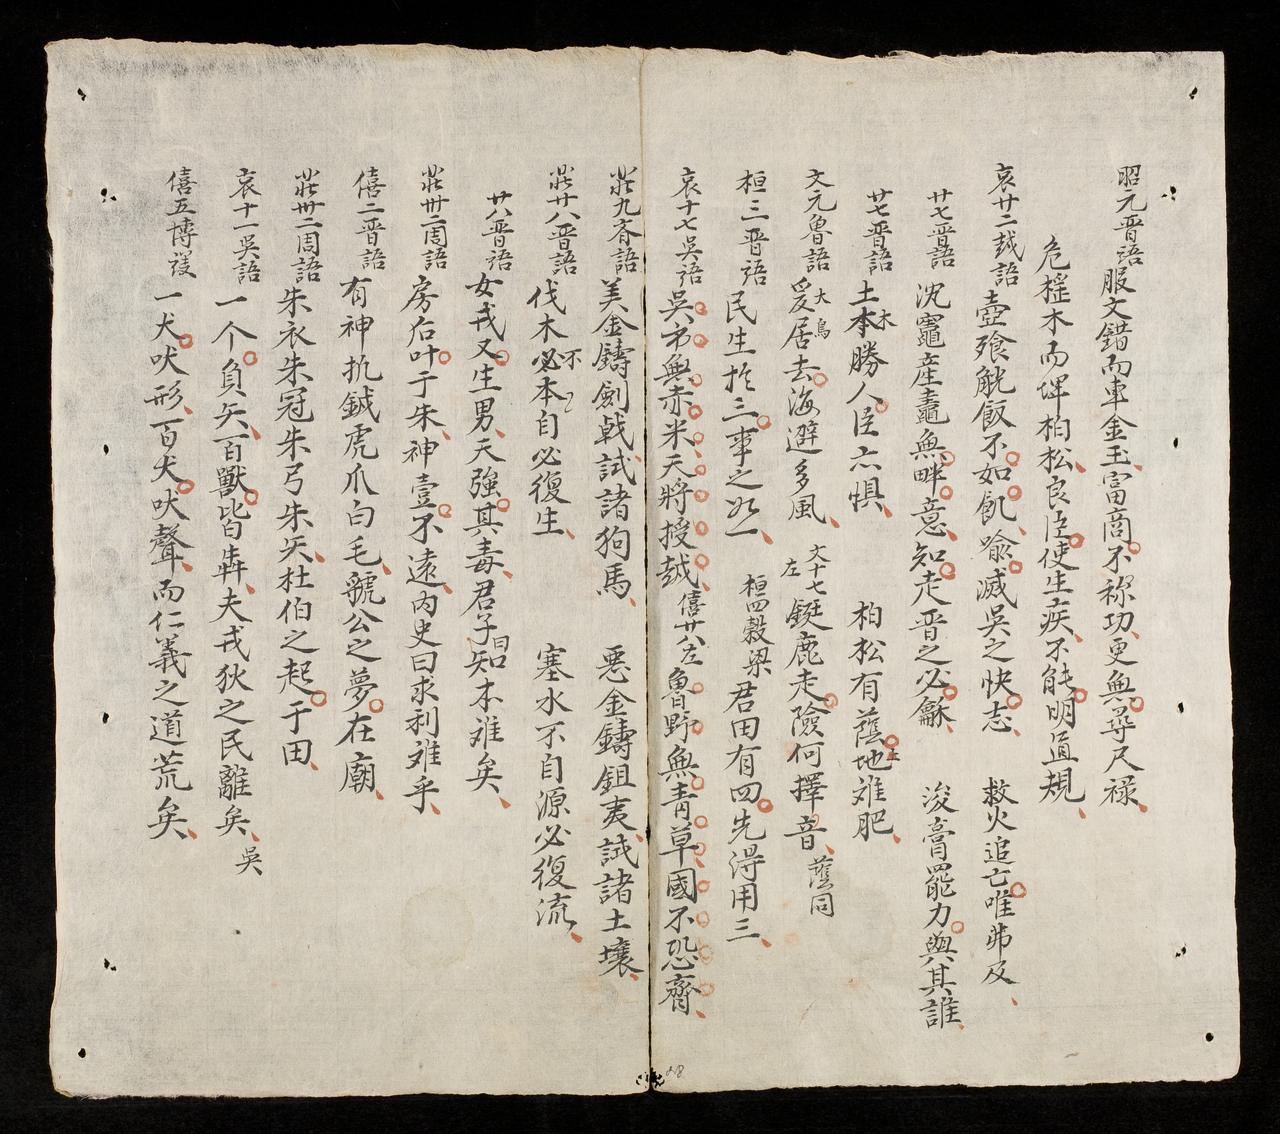 昭元晋語 服文錯而車金玉富商不称功更無尋尺禄
危榣木而俾柏松良臣使生疾不能明直規
哀廿二越語 壺飧觥飯不如飢喩滅吳之快志 救火追亡唯弗及
廿七晋語 沈竈産鼃無畔意知走晋之必龢 浚膏罷力與其誰
廿七晋語 土木勝人臣亦惧 柏松有蔭地难肥
文元魯語 爰居大鳥去海避多風 文十七左 鋌鹿走險何擇音 蔭同
桓三晋語 民生於三事之如一 桓四穀梁 君田有四先得用三
哀十七吳語 吳市無赤米天將授越 僖廿八左 魯野無青草國不恐齊
莊九斉語 美金鑄劍戟試諸狗馬 惡金鑄鉏夷試諸土壤
莊廿八晋語 伐木不必本自必復生 塞水不自源必復流
廿八晋語 女戎又生男天強其毒君子曰知本难矣
莊卅二周語 房后叶于朱神壹不遠内史曰求利难乎
僖二晋語 有神扒鉞虎爪白毛虢公之夢在廟
莊卅二周語 朱衣朱冠朱弓朱矢杜伯之起于田
哀十一吳語 一个負矢百獸皆犇夫戎狄之民離矣 吳
僖五博議 一犬吠形百犬吠聲而仁義之道荒矣